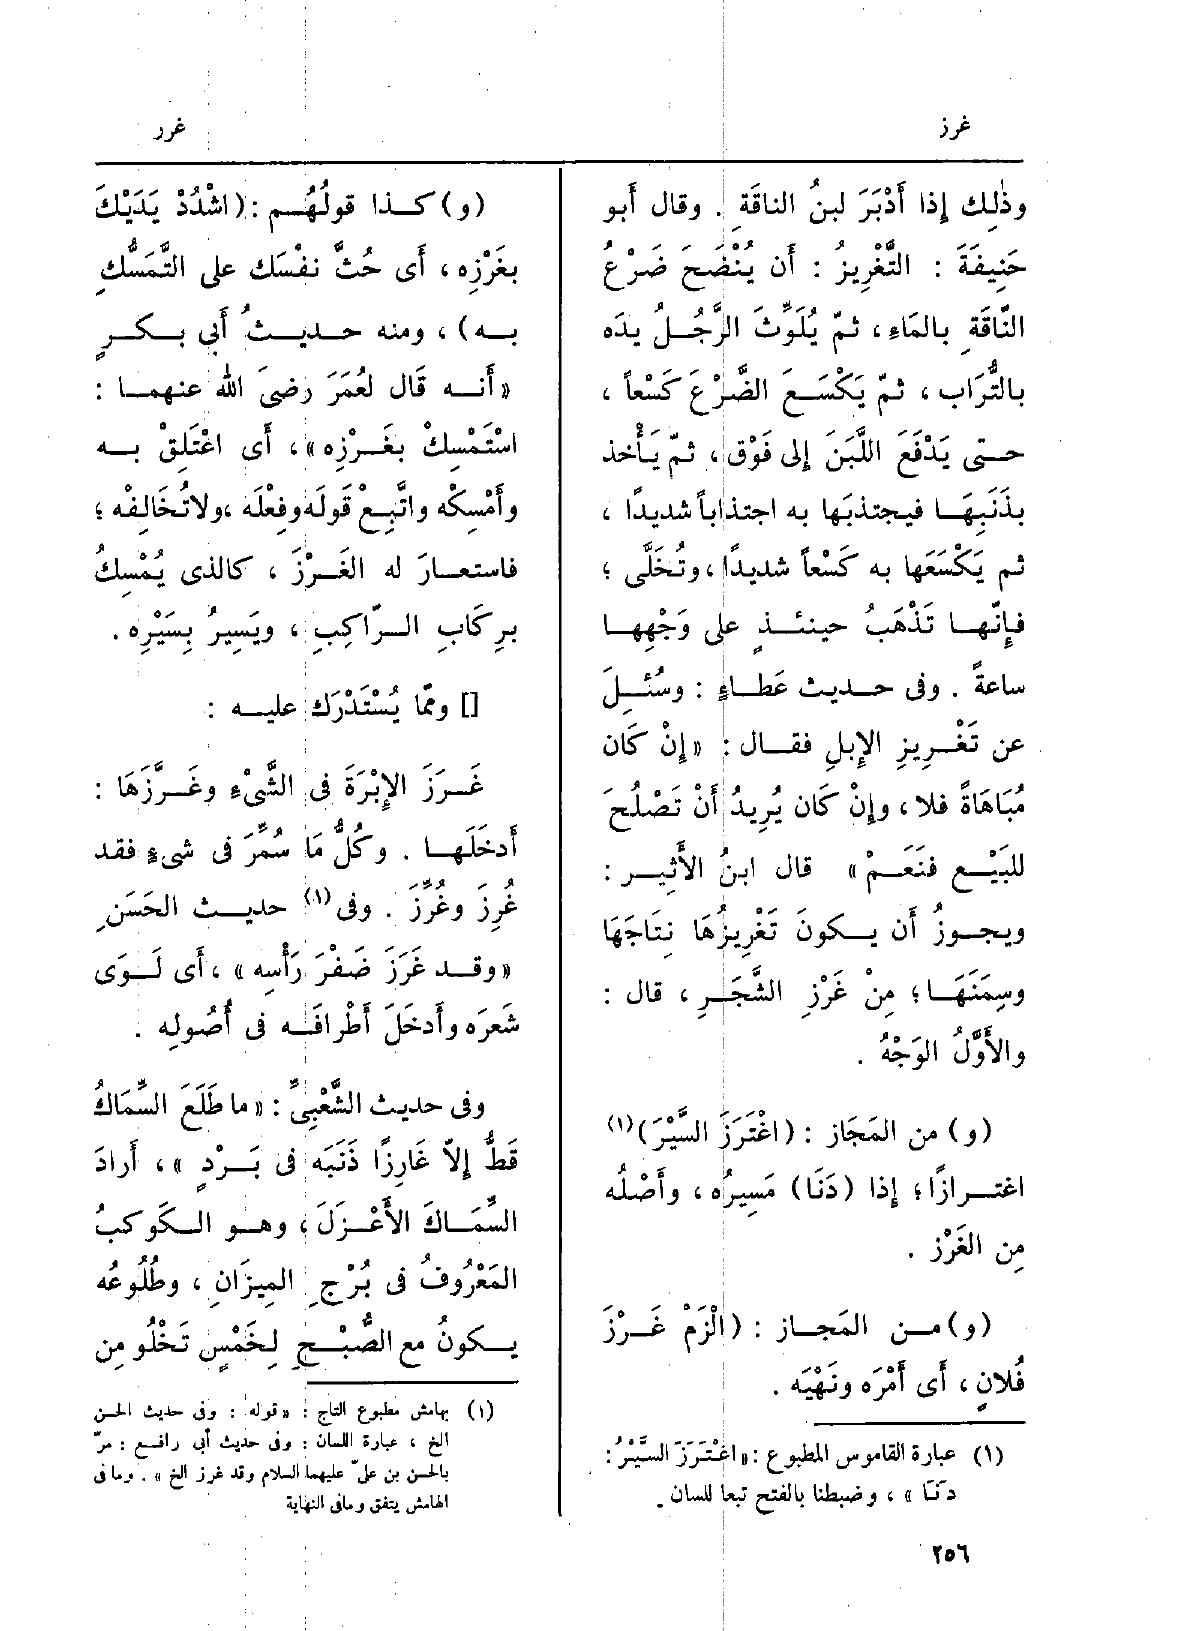 غرز
غرر
وذٰلِك إذا أَدْبَرَ لبنُ الناقَةِ . وقال أَبو
حَنِيفَةَ : التَّغْرِيزُ : أَن يُنْضَح ضَرْعُ
النّاقَةِ بالمَاءِ ، ثمّ يُلَوِّثَ الرَّجُلُ يدَه
بالتُّرَاب ، ثمّ يَكْسَعَ الضَّرْعَ كَسْعاً ،
حتى يَدْفَعَ اللَّبَنَ إلى فَوْق ، ثمّ يَأْخذ
بذَنَبِهَا فيجتذبَها به اجتذاباً شديدًا ،
ثم يَكْسَعَها به كَسْعاً شديدًا ، وتُخَلَّى ؛
فإِنّها تَذْهَبُ حينئذٍ على وَجْهِها
ساعةً . وفى حديث عَطاءٍ : وسُئِلَ
عن تَغْرِيزِ الإبلِ فقال : «إنْ كَان
مُبَاهَاةً فلا ، وإنْ كَان يُرِيدُ أَنْ تَصْلُحَ
للبَيْع فنَعَمْ » قال ابنُ الأَثيرِ :
ويجوزُ أن يكونَ تَغْرِيزُهَا نِتَاجَهَا
وسِمَنَهَا ؛ مِنْ غَرْزِ الشَّجَرِ ، قال :
والأَوَّلُ الوَجْهُ .
(و) من المَجَاز : (اغْتَرَزَ السَّيْرَ)(١)
اغترازًا ؛ إذا (دَنَا) مَسِيرُه ، وأَصْلُه
مِن الغَرْز .
(و) من المَجاز : (الْزَمْ غَرْزَ
فُلانٍ ، أَى أَمْرَه ونَهْيَه .
(١) عبارة القاموس المطبوع : «اغْتَرَزَ السَّيْرُ :
دَنَا » ، وضبطنا بالفتح تبعا للسان .
٢٥٦
(و) كذا قولُهُم : (اشْدُدْ يَدَيْكَ
بغَرْزِه ، أَى حُثَّ نفْسَك على التَّمَسُّكِ
به) ، ومنه حديثُ أَبى بكرٍ
«أَنه قَال لعُمَرَ رضىَ اللّٰه عنهما :
اسْتَمْسِكْ بغَرْزِه» ، أَى اعْتَلِقْ به
وأَمْسِكْه واتَّبِعْ قَولَه وفِعْلَه ، ولا تُخَالِفْه ؛
فاستعارَ له الغَرْزَ ، كالذى يُمْسِكُ
برِكَابِ الرّاكِبِ ، ويَسِيرُ بِسَيْرِه .
[] وممّا يُسْتَدْرَك عليه :
غَرَزَ الإبْرَةَ فى الشَّىْءِ وغَرَّزَهَا :
أَدخَلَها . وكُلُّ مَا سُمِّرَ فى شىءٍ فقد
غُرِزَ وغُرِّزَ . وفى(١) حديث الحَسَنِ
«وقد غَرَزَ ضَفْرَ رَأْسِه » ، أَى لَوَى
شَعرَه وأَدخَلَ أَطْرافَه فى أُصُولِه .
وفى حديث الشَّعْبِىّ : « ما طَلَعَ السِّمَاكُ
قَطُّ إلاّ غَارِزًا ذَنَبَه فى بَرْدٍ » ، أَرادَ
السِّمَاكَ الأَعْزَلَ ، وهو الكَوكبُ
المَعْرُوفُ فى بُرْجِ المِيزَانِ ، وطُلُوعُه
يكونُ مع الصُّبْحِ لِخَمْسٍ تَخْلُو مِن
(١) بهامش مطبوع التاج : «قوله : وفى حديث الحسن
الخ ، عبارة اللسان : وفى حديث أبى رافع : مرّ
بالحسن بن علىّ عليهما السلام وقد غرز الخ » . وما فى
الهامش يتفق وما فى النهاية